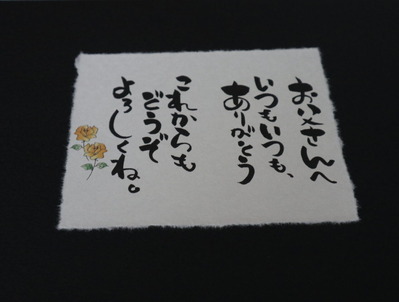 お父さんへ
いつもいつも、
ありがとう
これからも
どうぞ
よろしくね。